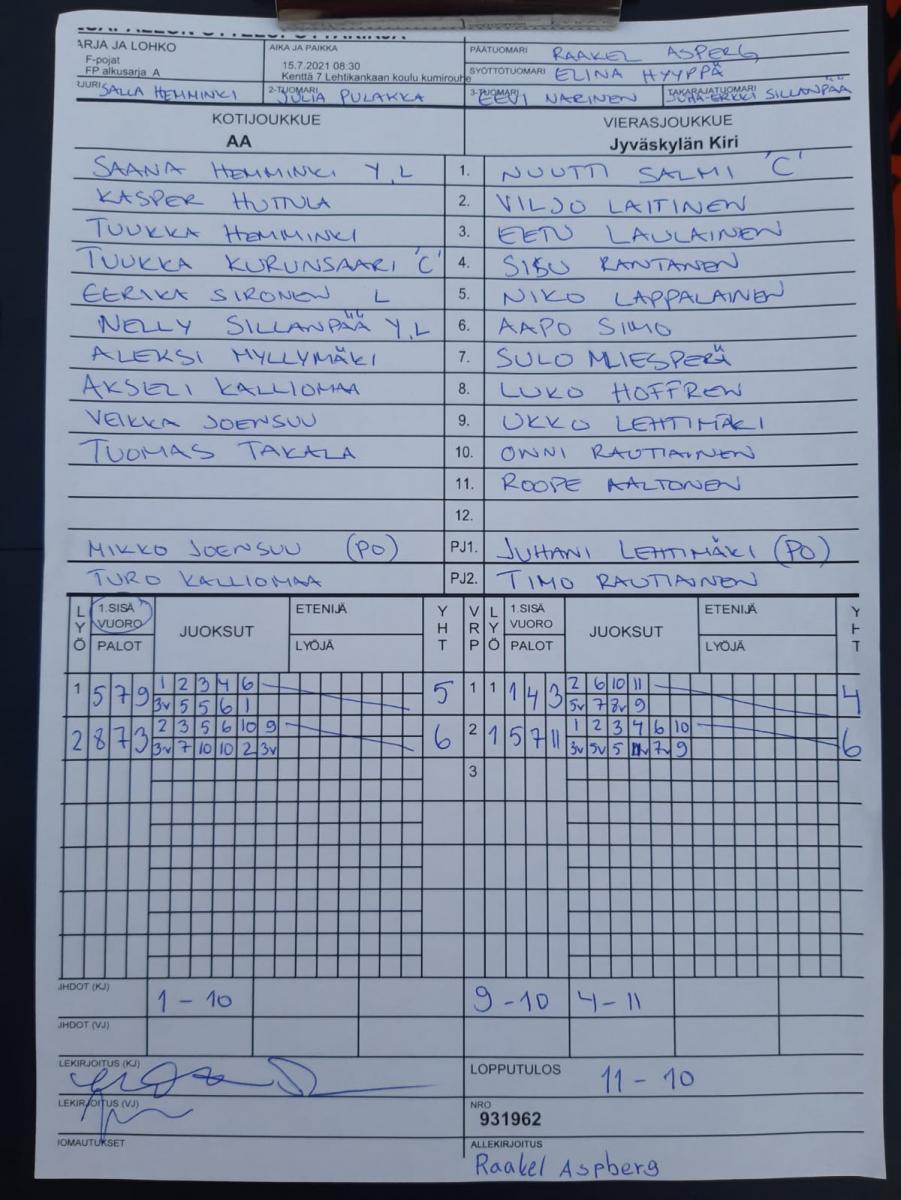 ARJA JA LOHKO
F-pojat
FP alkusarja A
AIKA JA PAIKKA
15.7.2021 08:30
Kenttä 7 Lehtikankaan koulu kumirouhe
PÄÄTUOMARI RAAKEL ASPERG
SYÖTTÖTUOMARI ELINA HYYPPÄ
SALLA HEMMINKI 2-TUOMARI JULIA PULAKKA 3-TUOMARI EEVI NARINEN TAKARAJATUOMARI JUHA-ERKKI SILLANPÄÄ
KOTIJOUKKUE VIERASJOUKKUE
AA Jyväskylän Kiri
SAANA HEMMINKI Y,L 1. NUUTTI SALMI 'C'
KASPER HUTTULA 2. VILJO LAITINEN
TUUKKA HEMMINKI 3. EETU LAULAINEN
TUUKKA KURUNSAARI 'C' 4. SISU RANTANEN
EERIKA SIRONEN L 5. NIKO LAPPALAINEN
NELLY SILLANPÄÄ Y,L 6. AAPO SIMO
ALEKSI MYLLYMÄKI 7. SULO
AKSELI KALLIOMAA 8. LUKO HOFFREN
VEIKKA JOENSUU 9. UKKO LEHTIMÄKI
TUOMAS TAKALA 10. ONNI RAUTIAINEN
11. ROOPE AALTONEN
12.
MIKKO JOENSUU (PO) PJ1. JUHANI LEHTIMÄKI (PO)
TURO KALLIOMAA PJ2. TIMO RAUTIAINEN
LYÖ 1.SISÄ VUORO PALOT JUOKSUT ETENIJÄ LYÖJÄ YHT VRP LYÖ 1.SISÄ VUORO PALOT JUOKSUT ETENIJÄ LYÖJÄ YHT
1 5 7 9 1 2 3 4 6 5 1 1 1 4 3 2 6 10 11 4
3v 5 5 6 1 5v 7 8v 9
2 8 7 3 2 3 5 6 10 9 6 2 1 5 7 11 1 2 3 4 6 10 6
3v 7 10 10 2 3v 3v 5v 5 7v 9
3
JHDOT (KJ) 1 - 10 9 - 10 4 - 11
JHDOT (VJ)
LEKIRJOITUS (KJ) LOPPUTULOS 11 - 10
LEKIRJOITUS (VJ) NRO
931962
IOMAUTUKSET ALLEKIRJOITUS
Raakel Aspberg